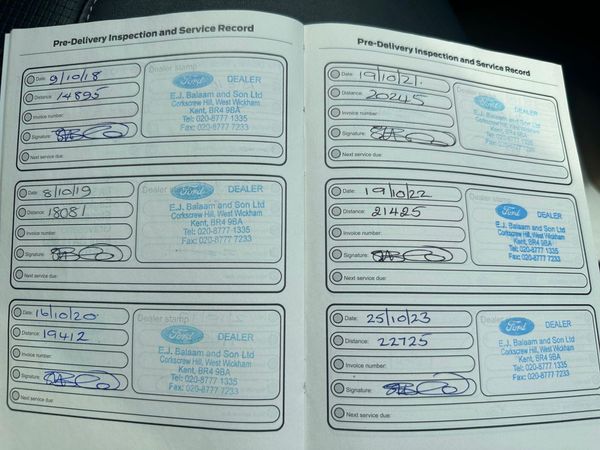 Pre-Delivery Inspection and Service Record
Date: 9/10/18
Distance: 14895
Invoice number:
Signature:
Next service due:
Dealer stamp
Ford DEALER
E.J. Balaam and Son Ltd
Corkscrew Hill, West Wickham
Kent, BR4 9BA
Tel: 020-8777 1335
Fax: 020-8777 7233
Date: 8/10/19
Distance: 18081
Invoice number:
Signature:
Next service due:
Dealer
Ford DEALER
E.J. Balaam and Son Ltd
Corkscrew Hill, West Wickham
Kent, BR4 9BA
Tel: 020-8777 1335
Fax: 020-8777 7233
Date: 16/10/20
Distance: 19412
Invoice number:
Signature:
Next service due:
Dealer stamp
Ford DEALER
E.J. Balaam and Son Ltd
Corkscrew Hill, West Wickham
Kent, BR4 9BA
Tel: 020-8777 1335
Fax: 020-8777 7233
Pre-Delivery Inspection and Service Record
Date: 19/10/21.
Distance: 20245
Invoice number:
Signature:
Next service due:
Ford DEALER
E.J. Balaam and Son Ltd
Corkscrew Hill, West Wickham
Kent, BR4 9BA
Tel: 020-8777 1335
Fax: 020-8777 7233
Date: 19/10/22
Distance: 21425
Invoice number:
Signature:
Next service due:
Ford DEALER
E.J. Balaam and Son Ltd
Corkscrew Hill, West Wickham
Kent, BR4 9BA
Tel: 020-8777 1335
Fax: 020-8777 7233
Date: 25/10/23
Distance: 22725
Invoice number:
Signature:
Next service due:
Ford DEALER
E.J. Balaam and Son Ltd
Corkscrew Hill, West Wickham
Kent, BR4 9BA
Tel: 020-8777 1335
Fax: 020-8777 7233